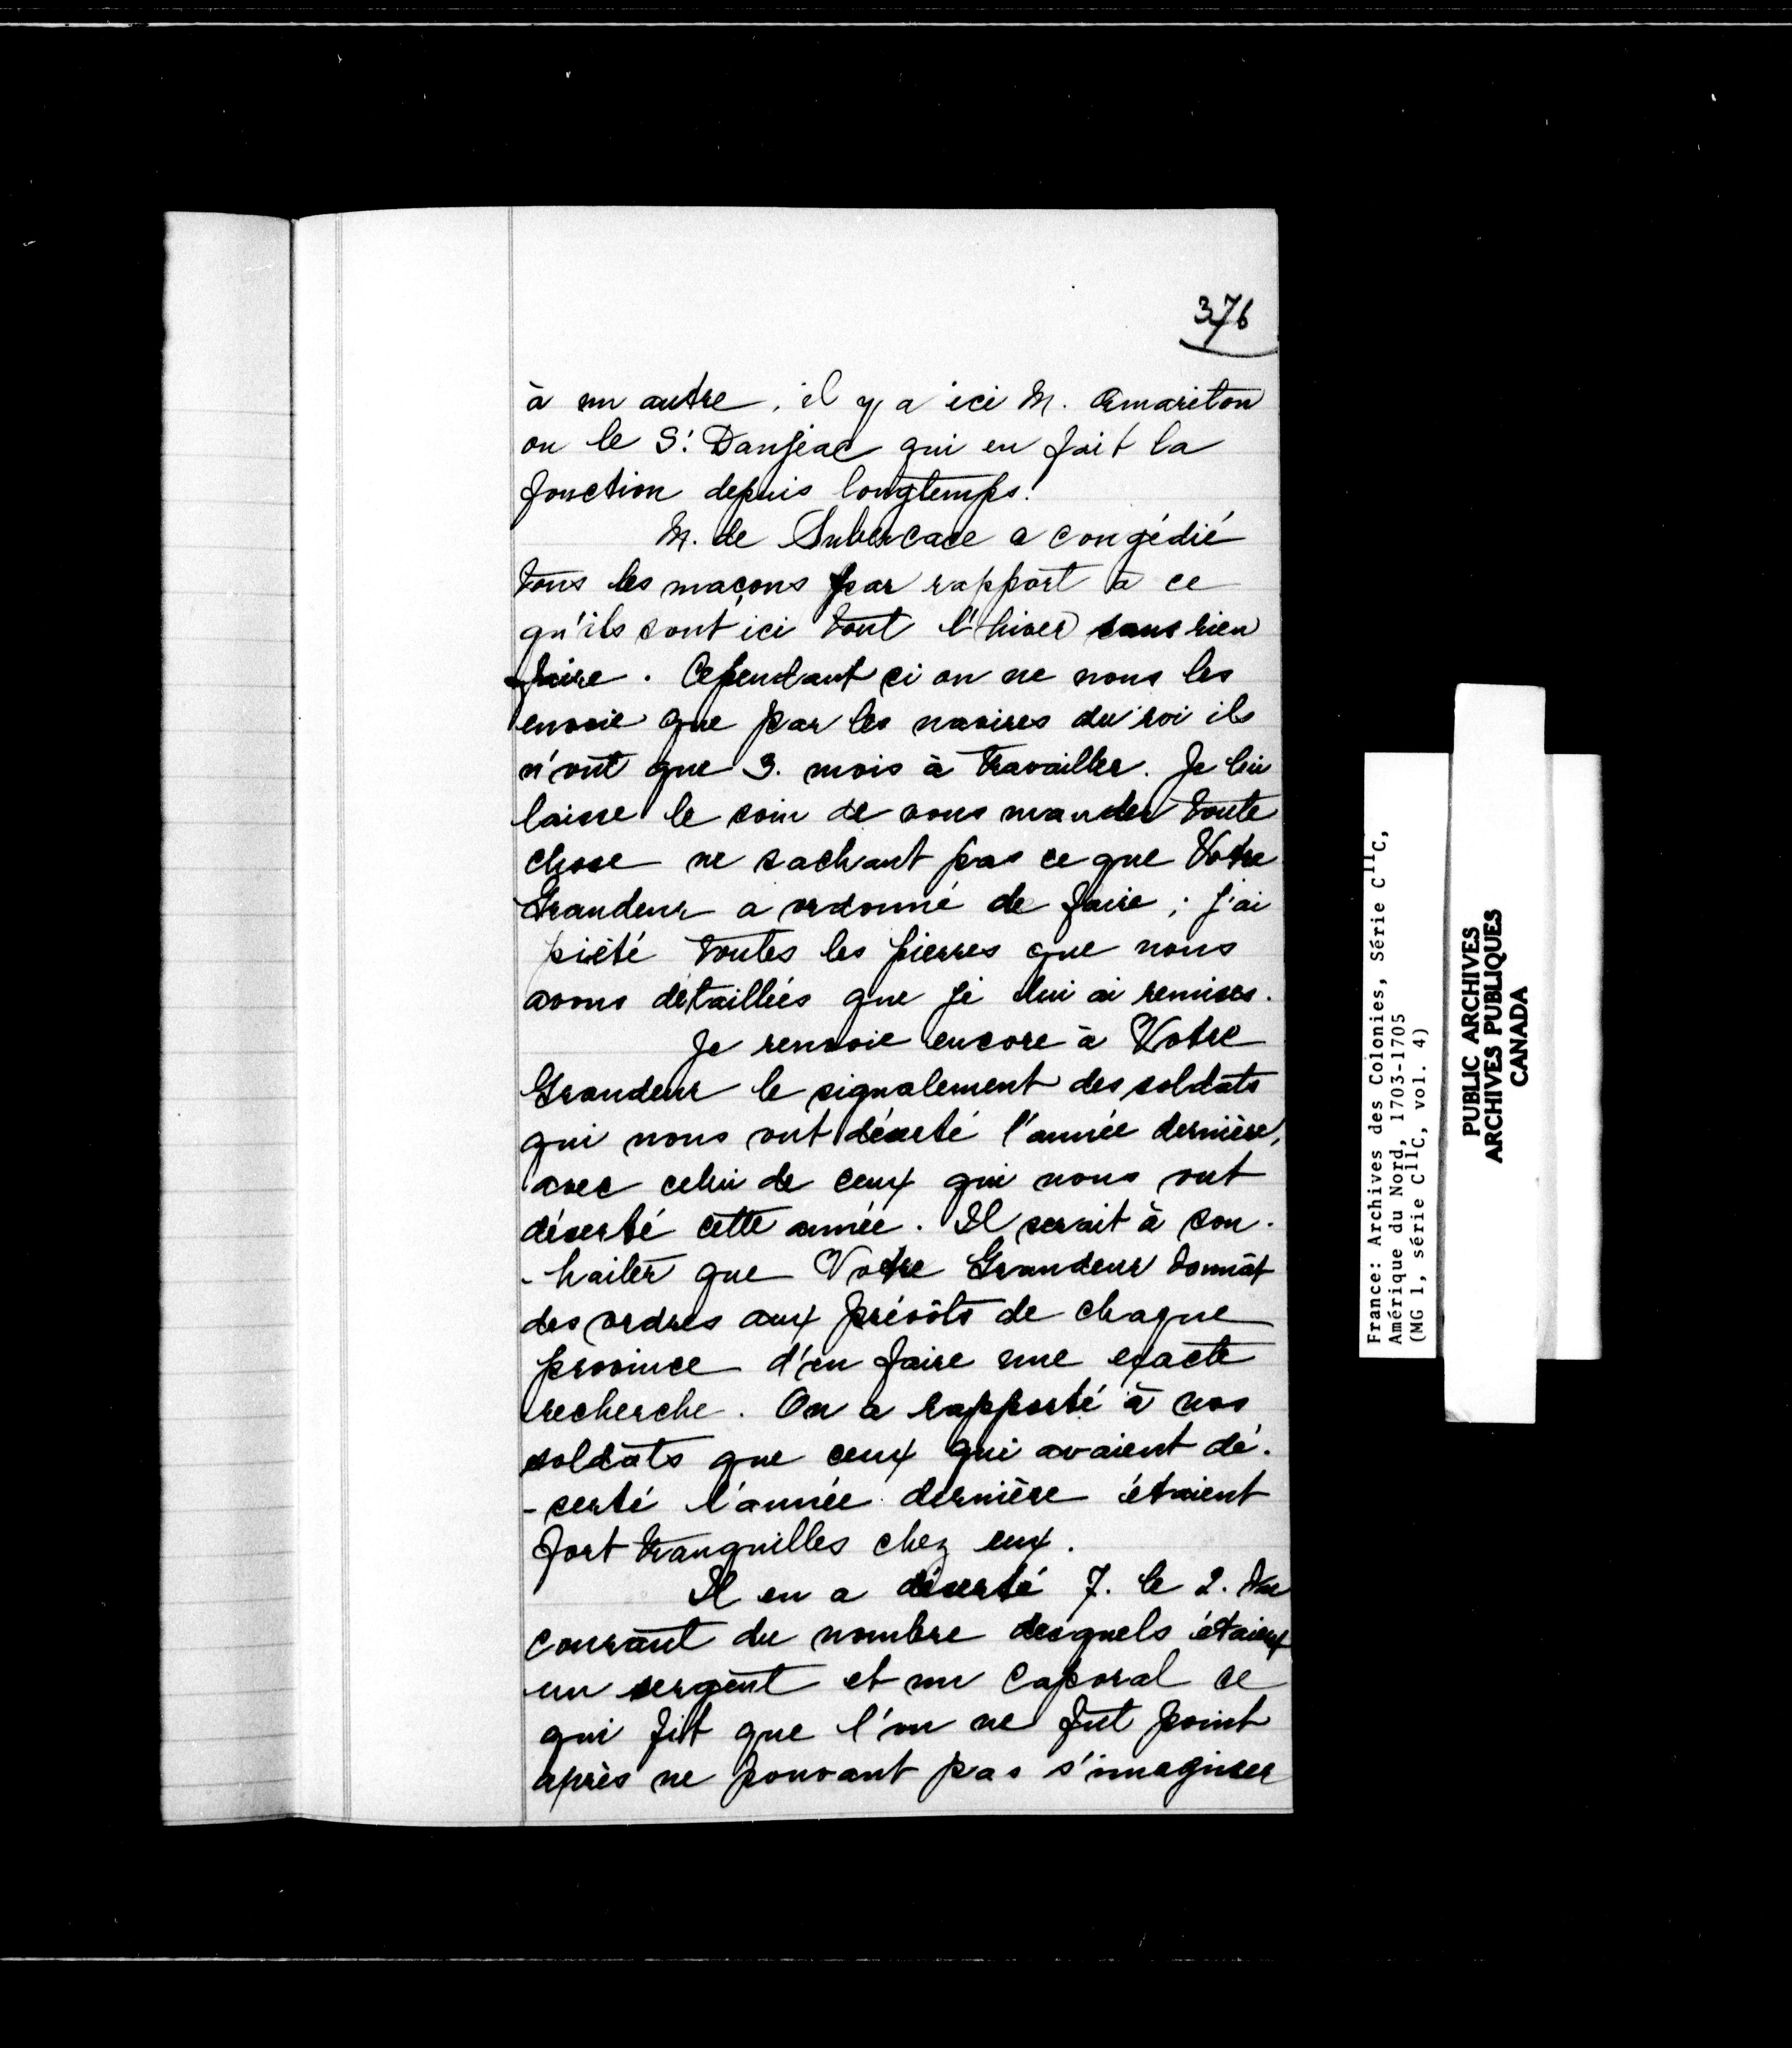 376
à un autre, il y a ici M. Amariton
ou le S.r Danjeac qui en fait la
fonction depuis longtemps.
M. de Subercase a congédié
tous les maçons par rapport à ce
qu'ils sont ici tout l'hiver sans rien
faire. Cependant si on ne nous les
envoie que par les navires du roi ils
n'ont que 3. mois à travailler. Je lui
laisse le soin de vous mander toute
chose ne sachant pas ce que Votre
Grandeur a ordonné de faire ; j'ai
piété toutes les pierres que nous
avons détaillées que je lui ai remises.
Je renvoie encore à Votre
Grandeur le signalement des soldats
qui nous ont déserté l'année dernière,
avec celui de ceux qui nous ont
déserté cette année. Il serait à sou-
-haiter que Votre Grandeur donnât
des ordres aux prévôts de chaque
province d'en faire une exacte
recherche. On a rapporté à nos
soldats que ceux qui avaient dé-
-serté l'année dernière étaient
fort tranquilles chez eux.
Il en a déserté 7. le 2. du
courant du nombre desquels étaient
un sergent et un caporal ce
qui fit que l'on ne fut point
après ne pouvant pas s'imaginer
France: Archives des Colonies, série C11C,
Amérique du Nord, 1703-1705
(MG 1, série C11C, vol. 4)
PUBLIC ARCHIVES
ARCHIVES PUBLIQUES
CANADA